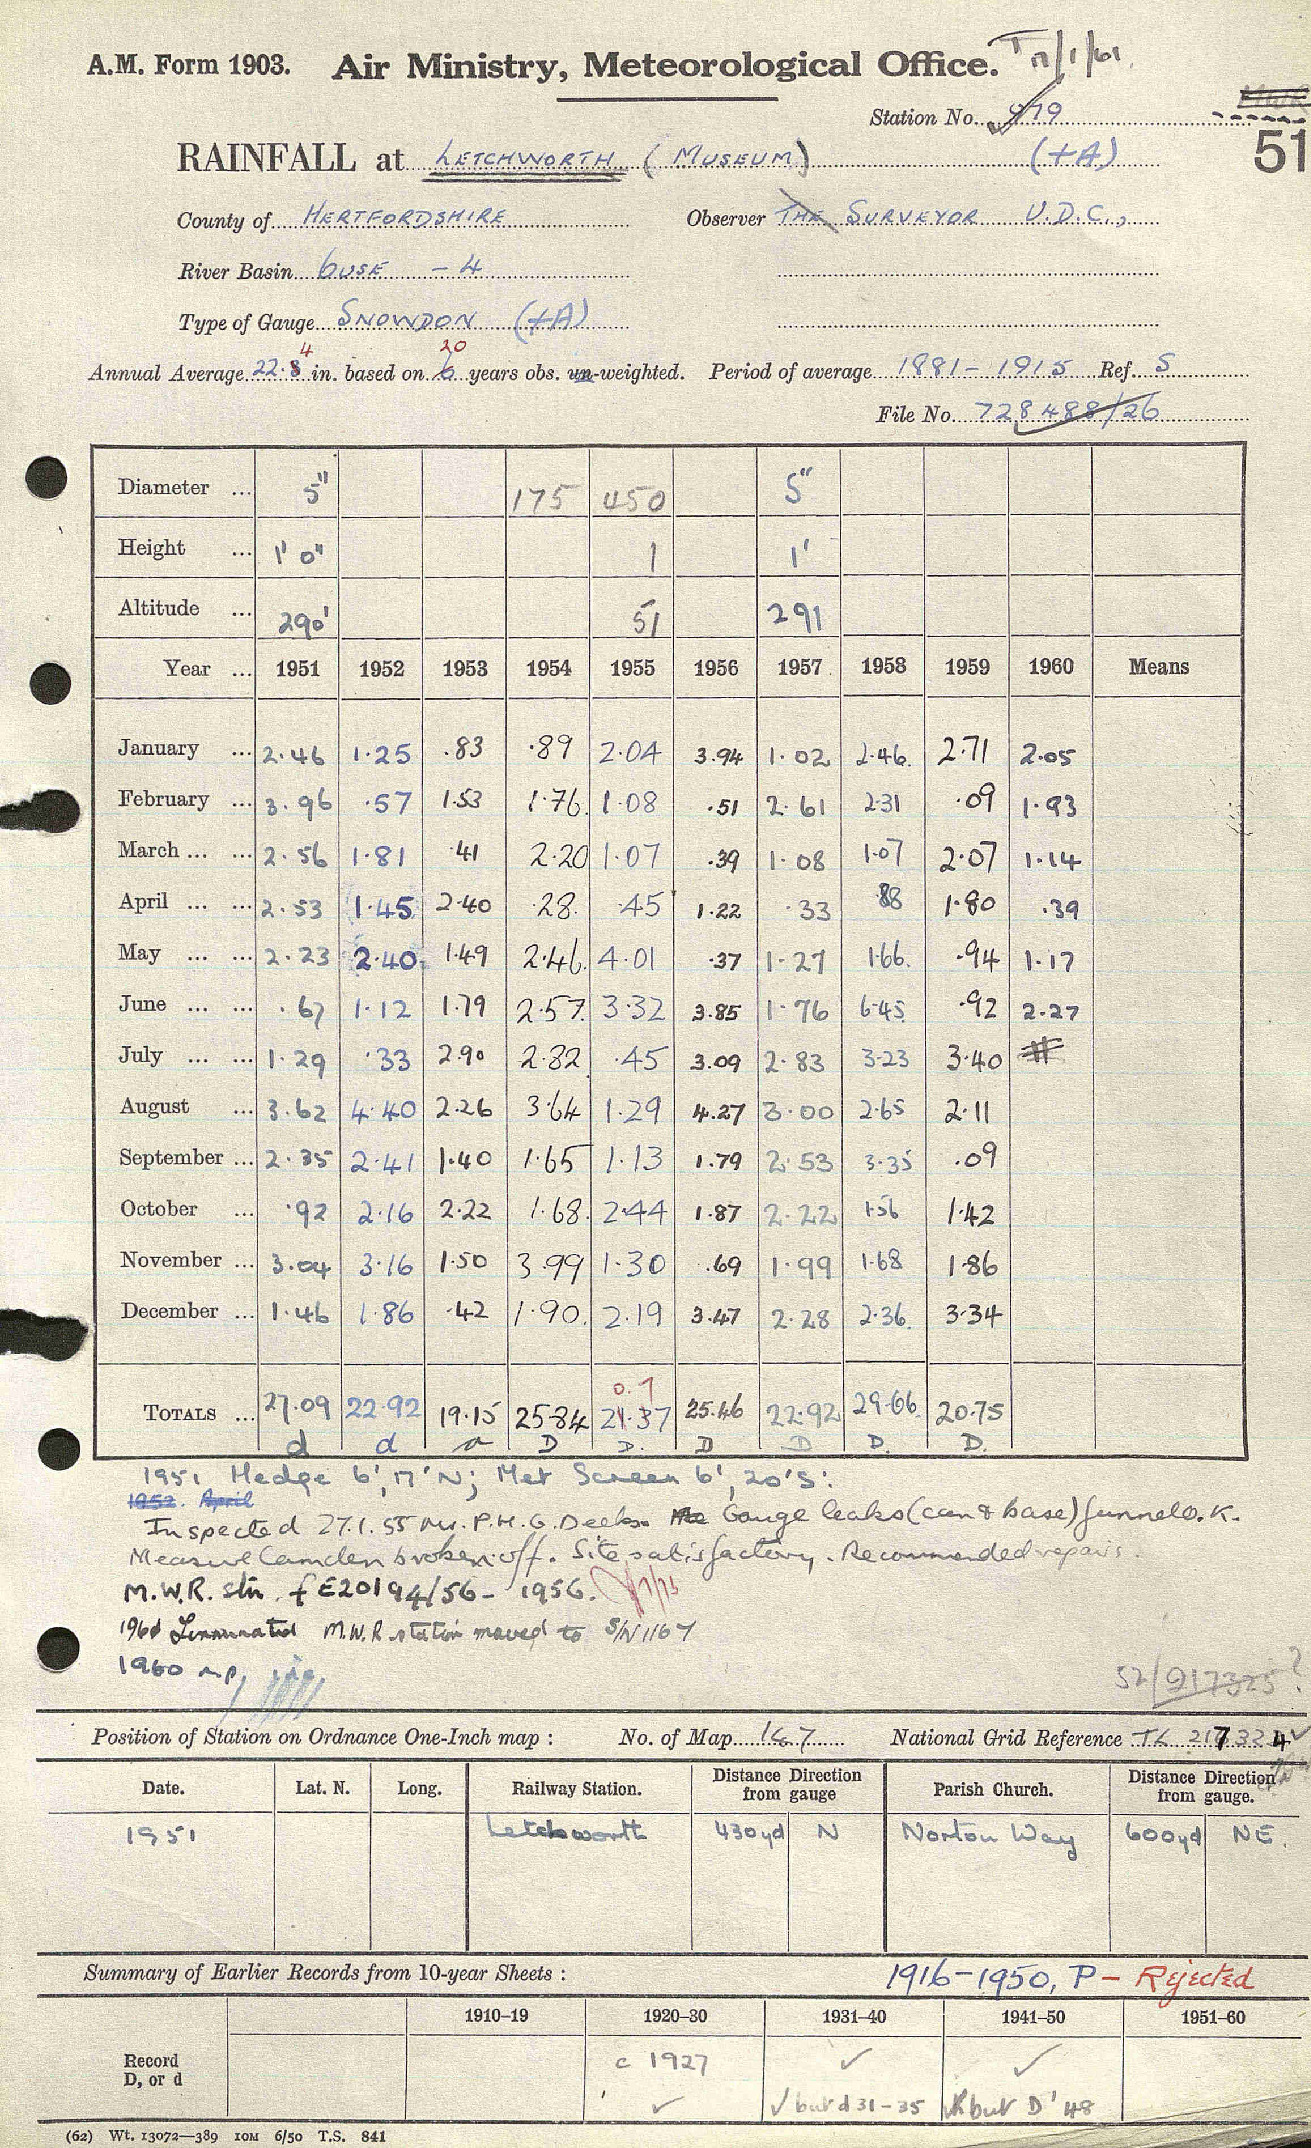 A.M. Form 1903. Air Ministry, Meteorological Office. T 17/1/61.
Station No. 479
51
RAINFALL at LETCHWORTH (MUSEUM) (+A)
County of HERTFORDSHIRE Observer THE SURVEYOR U.D.C.,
River Basin OUSE - 4
Type of Gauge SNOWDON (+A)
4 20
Annual Average 22.8 in. based on 6 years obs. un-weighted. Period of average 1881-1915 Ref. S
File No. 728488/26
Diameter ... 5" 175 450 5"
Height ... 1' 0" 1 1'
Altitude ... 290' 51 291
Year ... 1951 1952 1953 1954 1955 1956 1957 1958 1959 1960 Means
January ... 2.46 1.25 .83 .89 2.04 3.94 1.02 2.46 2.71 2.05
February ... 3.96 .57 1.53 1.76 1.08 .51 2.61 2.31 .09 1.93
March ... ... 2.56 1.81 .41 2.20 1.07 .39 1.08 1.07 2.07 1.14
April ... ... 2.53 1.45 2.40 .28 .45 1.22 .33 88 1.80 .39
May ... ... 2.23 2.40 1.49 2.46 4.01 .37 1.27 1.66 .94 1.17
June ... ... .67 1.12 1.79 2.57 3.32 3.85 1.76 6.45 .92 2.27
July ... ... 1.29 .33 2.90 2.82 .45 3.09 2.83 3.23 3.40
August ... 3.62 4.40 2.26 3.64 1.29 4.27 3.00 2.65 2.11
September ... 2.35 2.41 1.40 1.65 1.13 1.79 2.53 3.35 .09
October ... .92 2.16 2.22 1.68 2.44 1.87 2.22 1.56 1.42
November ... 3.04 3.16 1.50 3.99 1.30 .69 1.99 1.68 1.86
December ... 1.46 1.86 .42 1.90 2.19 3.47 2.28 2.36 3.34
0.7
TOTALS ... 27.09 22.92 19.15 25.84 21.37 25.46 22.92 29.66 20.75
d d a D D. D D D. D.
1951 Hedge 6', 17'N; Met Screen 6', 20'S:
1952. April
Inspected 27.1.55 Mr. P.H.G. Deeks. Gauge leaks (can & base) funnel O.K.
Measure Camden broken off. Site satisfactory. Recommended repairs.
M.W.R. stn. f E20194/56 - 1956.
1960 Terminated M.W.R station moved to S/N 1167
1960 n.p.
52/917325?
Position of Station on Ordnance One-Inch map : No. of Map 147 National Grid Reference TL 217324
Date. Lat. N. Long. Railway Station. Distance Direction from gauge Parish Church. Distance Direction from gauge.
1951 Letchworth 430yd N Norton Way 600yd NE.
Summary of Earlier Records from 10-year Sheets : 1916-1950, P - Rejected
1910-19 1920-30 1931-40 1941-50 1951-60
Record c 1927 ✓ ✓
D, or d ✓ ✓ but d 31-35 but D '48
(62) Wt. 13072—389 10M 6/50 T.S. 841